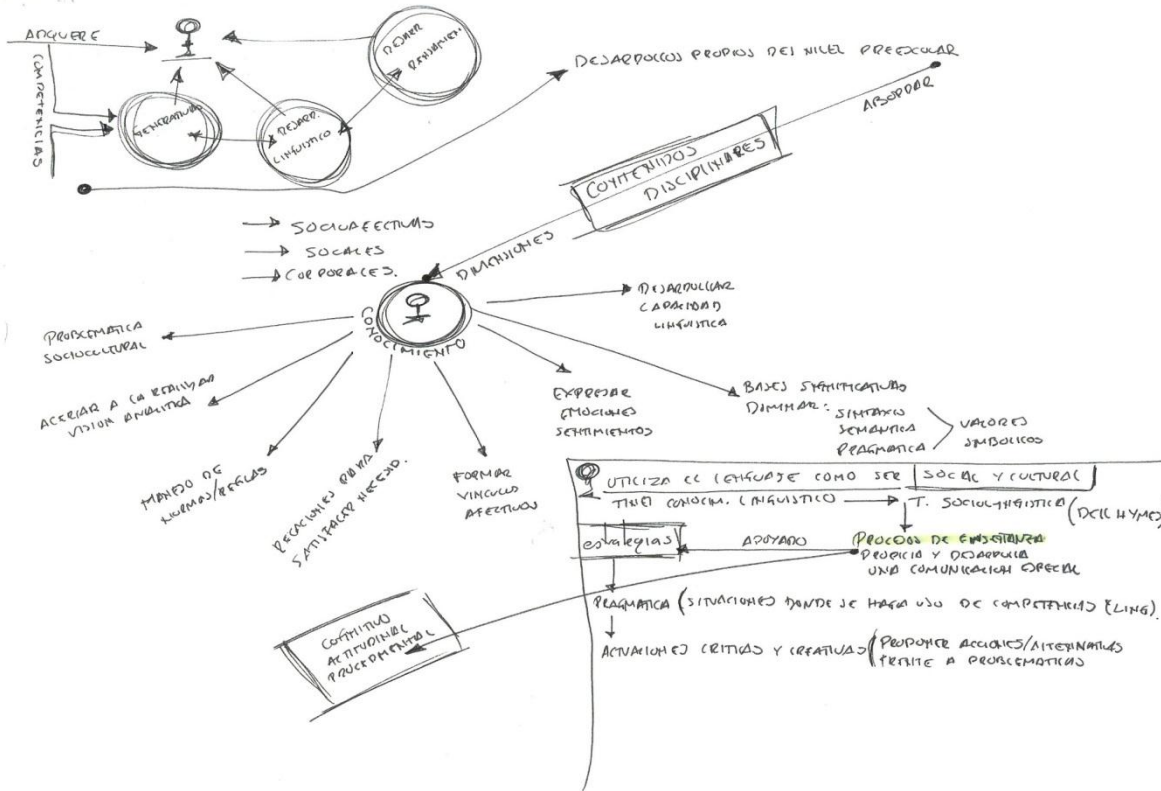 ADQUIERE
COMPETENCIAS
GENERATIVAS
DESARR.
LINGUISTICO
DESARR
PENSAMIEN.
DESARROLLOS PROPIOS DEL NIVEL PREESCOLAR
ABORDAR
CONTENIDOS
DISCIPLINARES
DIMENSIONES
SOCIOAFECTIVAS
SOCIALES
CORPORALES.
CONOCIMIENTO
DESARROLLAR
CAPACIDAD
LINGUISTICA
PROBLEMATICA
SOCIOCULTURAL
ACERCAR A LA REALIDAD
VISION ANALITICA
MANEJO DE
NORMAS/REGLAS
RELACIONES PARA
SATISFACER NECESID.
FORMAR
VINCULOS
AFECTIVOS
EXPRESAR
EMOCIONES
SENTIMIENTOS
BASES SIGNIFICATIVAS
SINTAXIS
SEMANTICA
PRAGMATICA
VALORES
SIMBOLICOS
UTILIZA EL LENGUAJE COMO SER SOCIAL Y CULTURAL
TIENE CONOCIM. LINGUISTICO
T. SOCIOLINGUISTICA (DELL HYMES)
estrategias
APOYADO
PROCESOS DE ENSEÑANZA
PROPICIA Y DESARROLLA
UNA COMUNICACION ESPECIAL
PRAGMATICA (SITUACIONES DONDE SE HAGA USO DE COMPETENCIAS (LING).
ACTUACIONES CRITICAS Y CREATIVAS (PROPONER ACCIONES/ALTERNATIVAS
FRENTE A PROBLEMATICAS
COGNITIVO
ACTITUDINAL
PROCEDIMENTAL